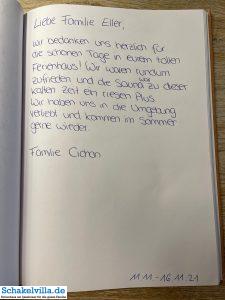 Liebe Familie Eller,
wir bedanken uns herzlich für
die schönen Tage in eurem tollen
Ferienhaus! Wir waren rundum
zufrieden und die Sauna war zu dieser
kalten Zeit ein riesen Plus.
Wir haben uns in die Umgebung
verliebt und kommen im Sommer
gerne wieder.
Familie Cichon
11.11 - 16.11.21
Schakelvilla.de